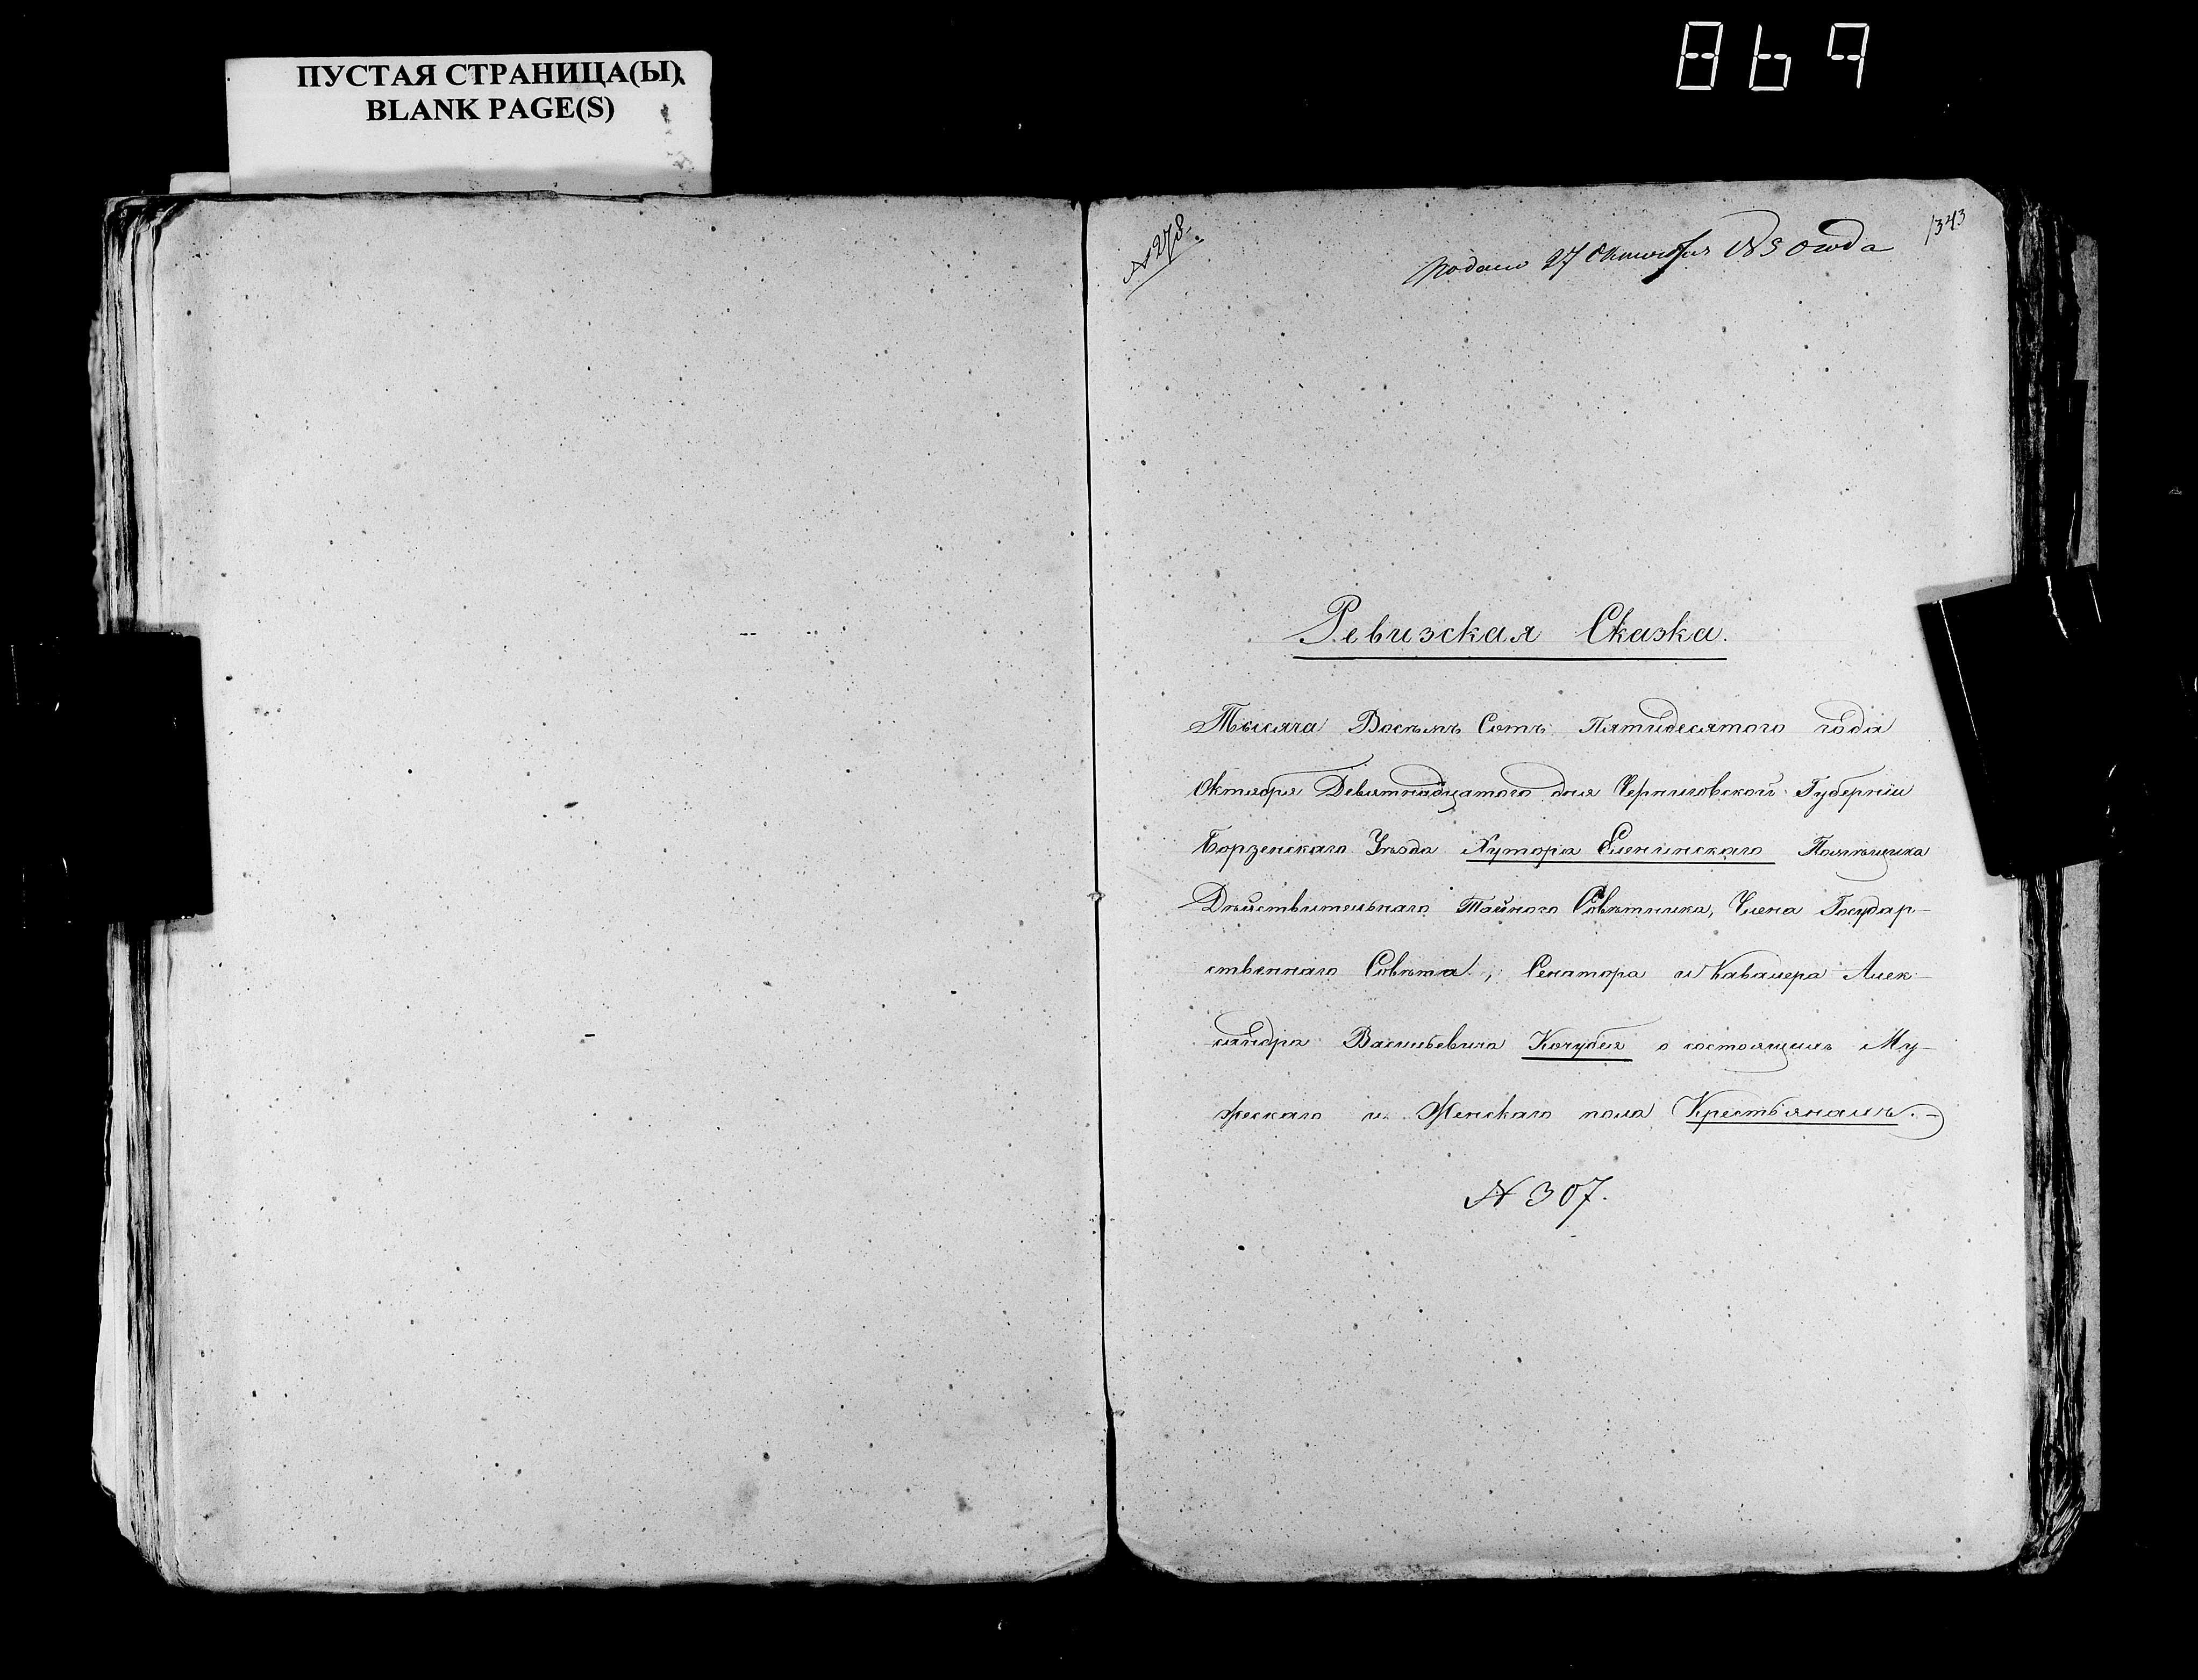 ПУСТАЯ СТРАНИЦА(Ы)
BLANK PAGE(S)
869
№ 278.
Подана 27 Октября 1850 года
1343
Ревизская Сказка.
Тысяча Восемь Сотъ Пятидесятого года
Октября Девятнадцатого дня Черниговской Губерніи
Борзенскаго Уѣзда Хутора Еленинскаго Помѣщика
Дѣйствительнаго Тайного Совѣтника, Члена Государ-
ственнаго Совѣта, Сенатора и Кавалера Алек-
сандра Васильевича Кочубея о состоящихъ Му-
жескаго и Женскаго пола Крестьянахъ.
№ 307.